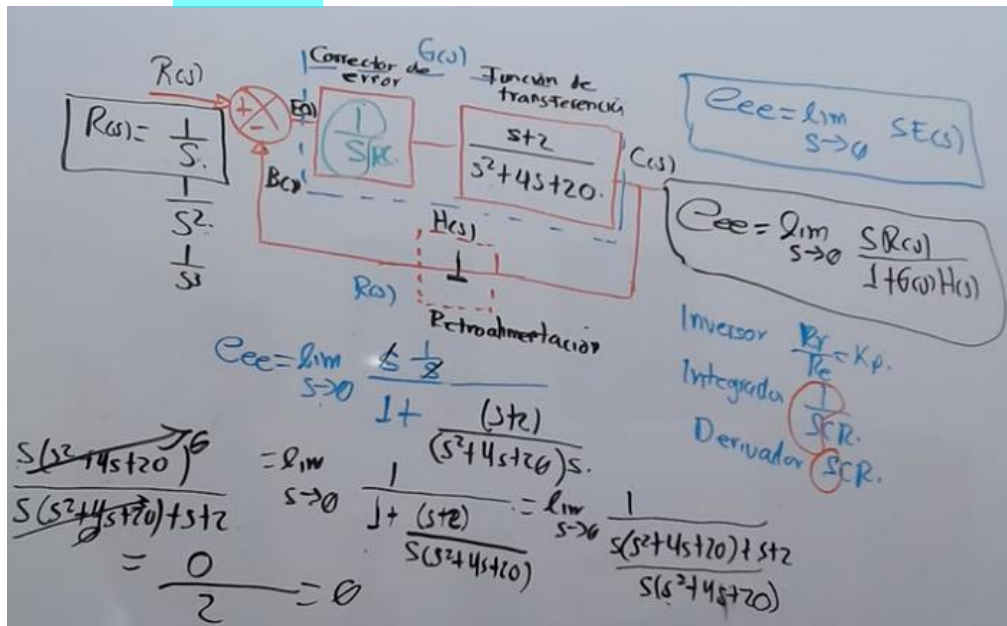 G(s)
Corrector de error
Función de transferencia
R(s)
+
-
E(s)
1/SRC.
s+2/s²+4s+20.
C(s)
B(s)
H(s)
1
R(s)
Retroalimentación
R(s) = 1/S.
1/S².
1/S³
eee = lim s→0 SE(s)
eee = lim s→0 SR(s)/1+G(s)H(s)
Inversor Rr/Re = Kp.
Integrador 1/SCR.
Derivador SCR.
eee = lim s→0 s 1/s / 1 + (s+2)/(s²+4s+20)s.
= lim s→0 1/1 + (s+2)/s(s²+4s+20) = lim s→0 1/s(s²+4s+20)+s+2/s(s²+4s+20)
s(s²+4s+20) 0/s(s²+4s+20)+s+2 0
= 0/2 = 0